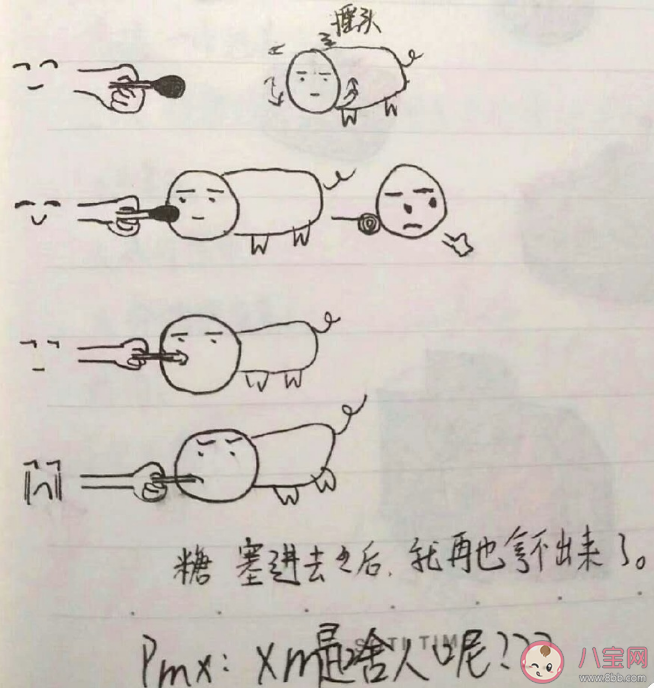 摇头
糖 塞进去之后,我再也拿不出来了。
TIM
Pmx: xm是啥人呢???
八宝网
www.8bb.com